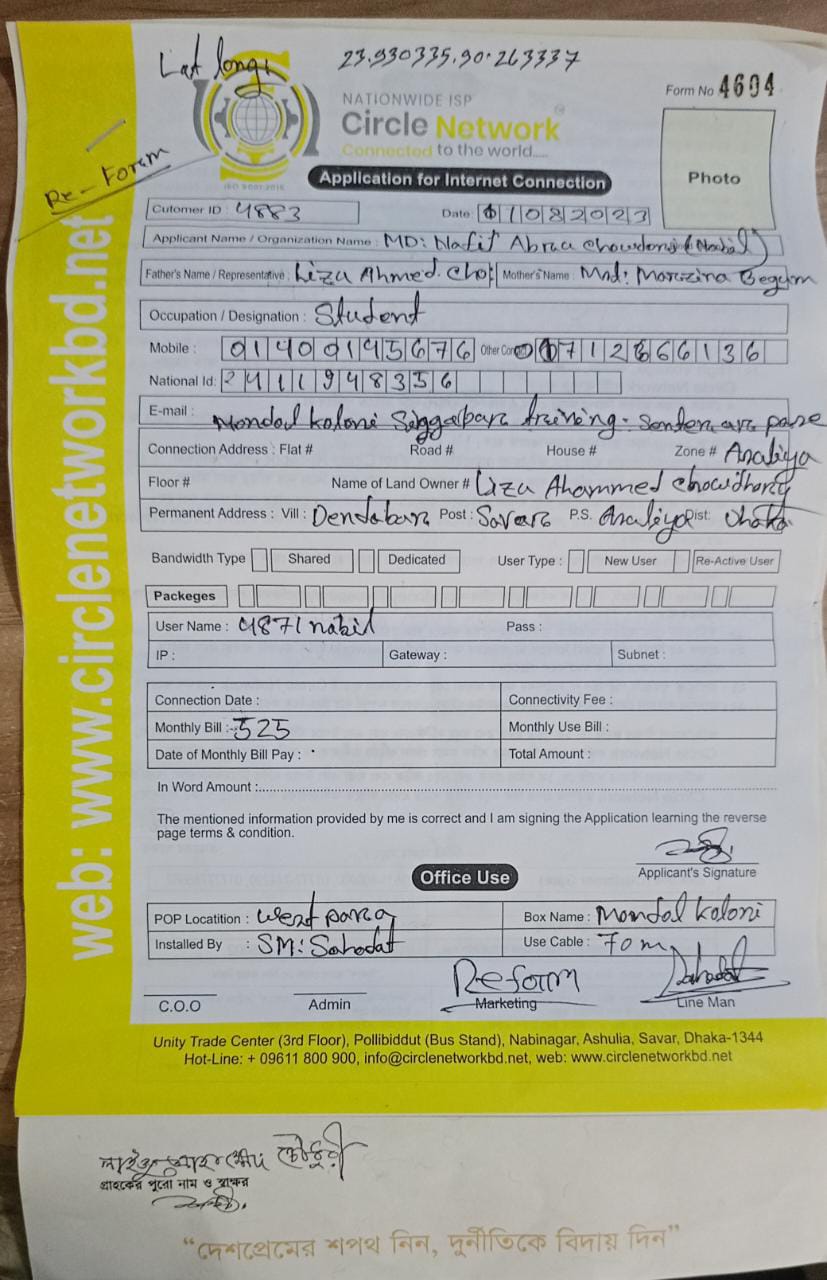 Lat long: 23.930335.90.263337
Form No 4604
NATIONWIDE ISP
Circle Network
Connected to the world.....
ISO 9001:2015
Re-Form
Application for Internet Connection
Photo
Cutomer ID : 4883 Date: 01082023
Applicant Name / Organization Name : MD: Nafit Abraa Chowdory (Nabil)
Father's Name / Representative : Liza Ahmed. Cho Mother's Name : Mad: Morzina Begum
Occupation / Designation : Student
Mobile : 01400145676 Other Con 01712866136
National Id: 2411948356
E-mail :
Mondol koloni training
Connection Address : Flat # Road # House # Zone # Asaliya
Floor # Name of Land Owner # Liza Ahammed chowdhory
Permanent Address : Vill : Dendabar Post : Savar P.S. Asaliya Dist: Dhaka
Bandwidth Type Shared Dedicated User Type : New User Re-Active User
Packeges
User Name : 4871nabid Pass :
IP : Gateway : Subnet :
Connection Date : Connectivity Fee :
Monthly Bill : 525 Monthly Use Bill :
Date of Monthly Bill Pay : Total Amount :
In Word Amount :
The mentioned information provided by me is correct and I am signing the Application learning the reverse
page terms & condition.
Applicant's Signature
Office Use
POP Locatition : West para Box Name : Mondol koloni
Installed By : SM: Sahodat Use Cable : 70 m
Reform Sahadat
C.O.O Admin Marketing Line Man
Unity Trade Center (3rd Floor), Pollibiddut (Bus Stand), Nabinagar, Ashulia, Savar, Dhaka-1344
Hot-Line: + 09611 800 900, info@circlenetworkbd.net, web: www.circlenetworkbd.net
web: www.circlenetworkbd.net
চৌধুরী
গ্রাহকের পুরো নাম ও স্বাক্ষর
“দেশপ্রেমের শপথ নিন, দুর্নীতিকে বিদায় দিন”